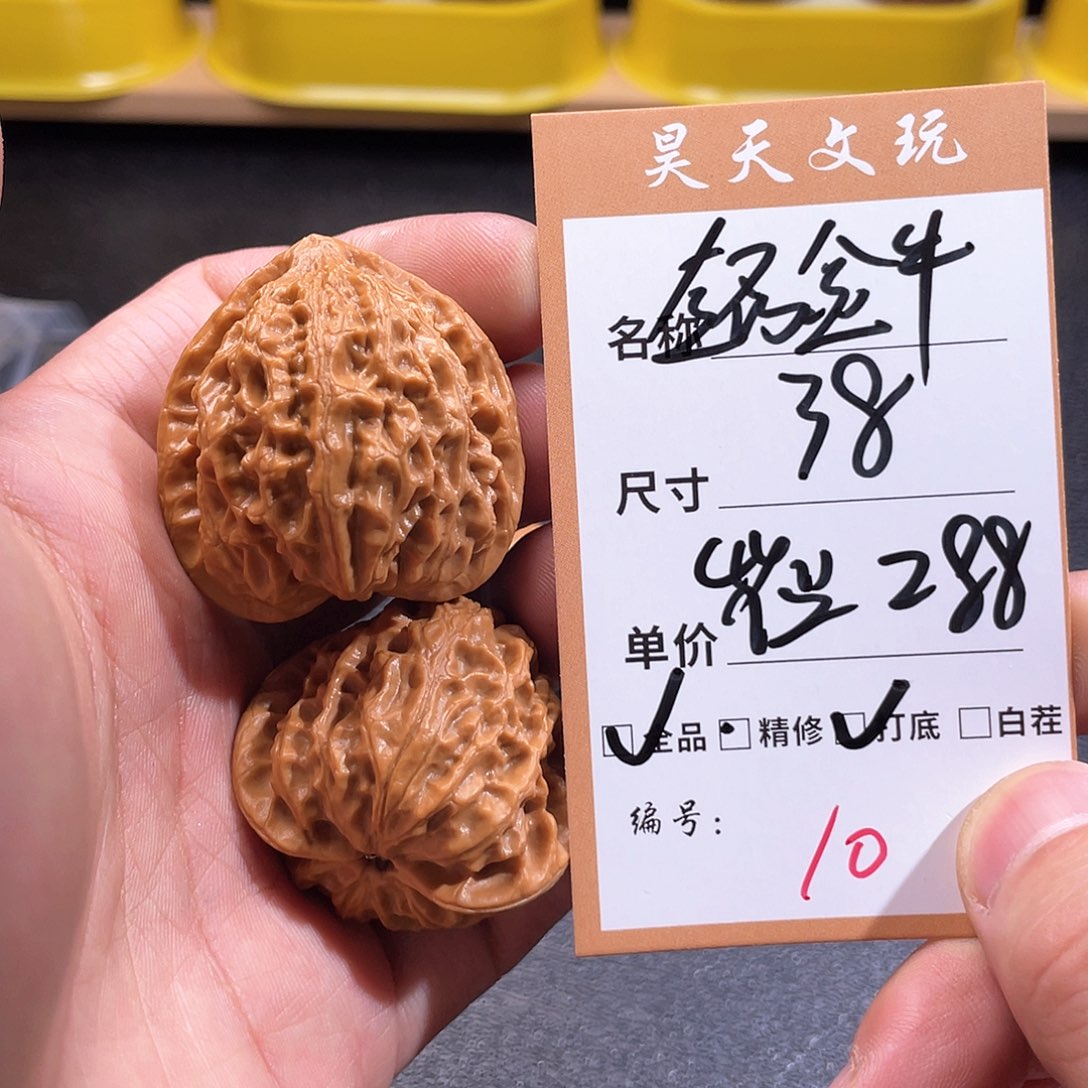 昊天文玩
名称 金牛
尺寸 38
单价 288
全品 精修 打底 白茬
编号: 10